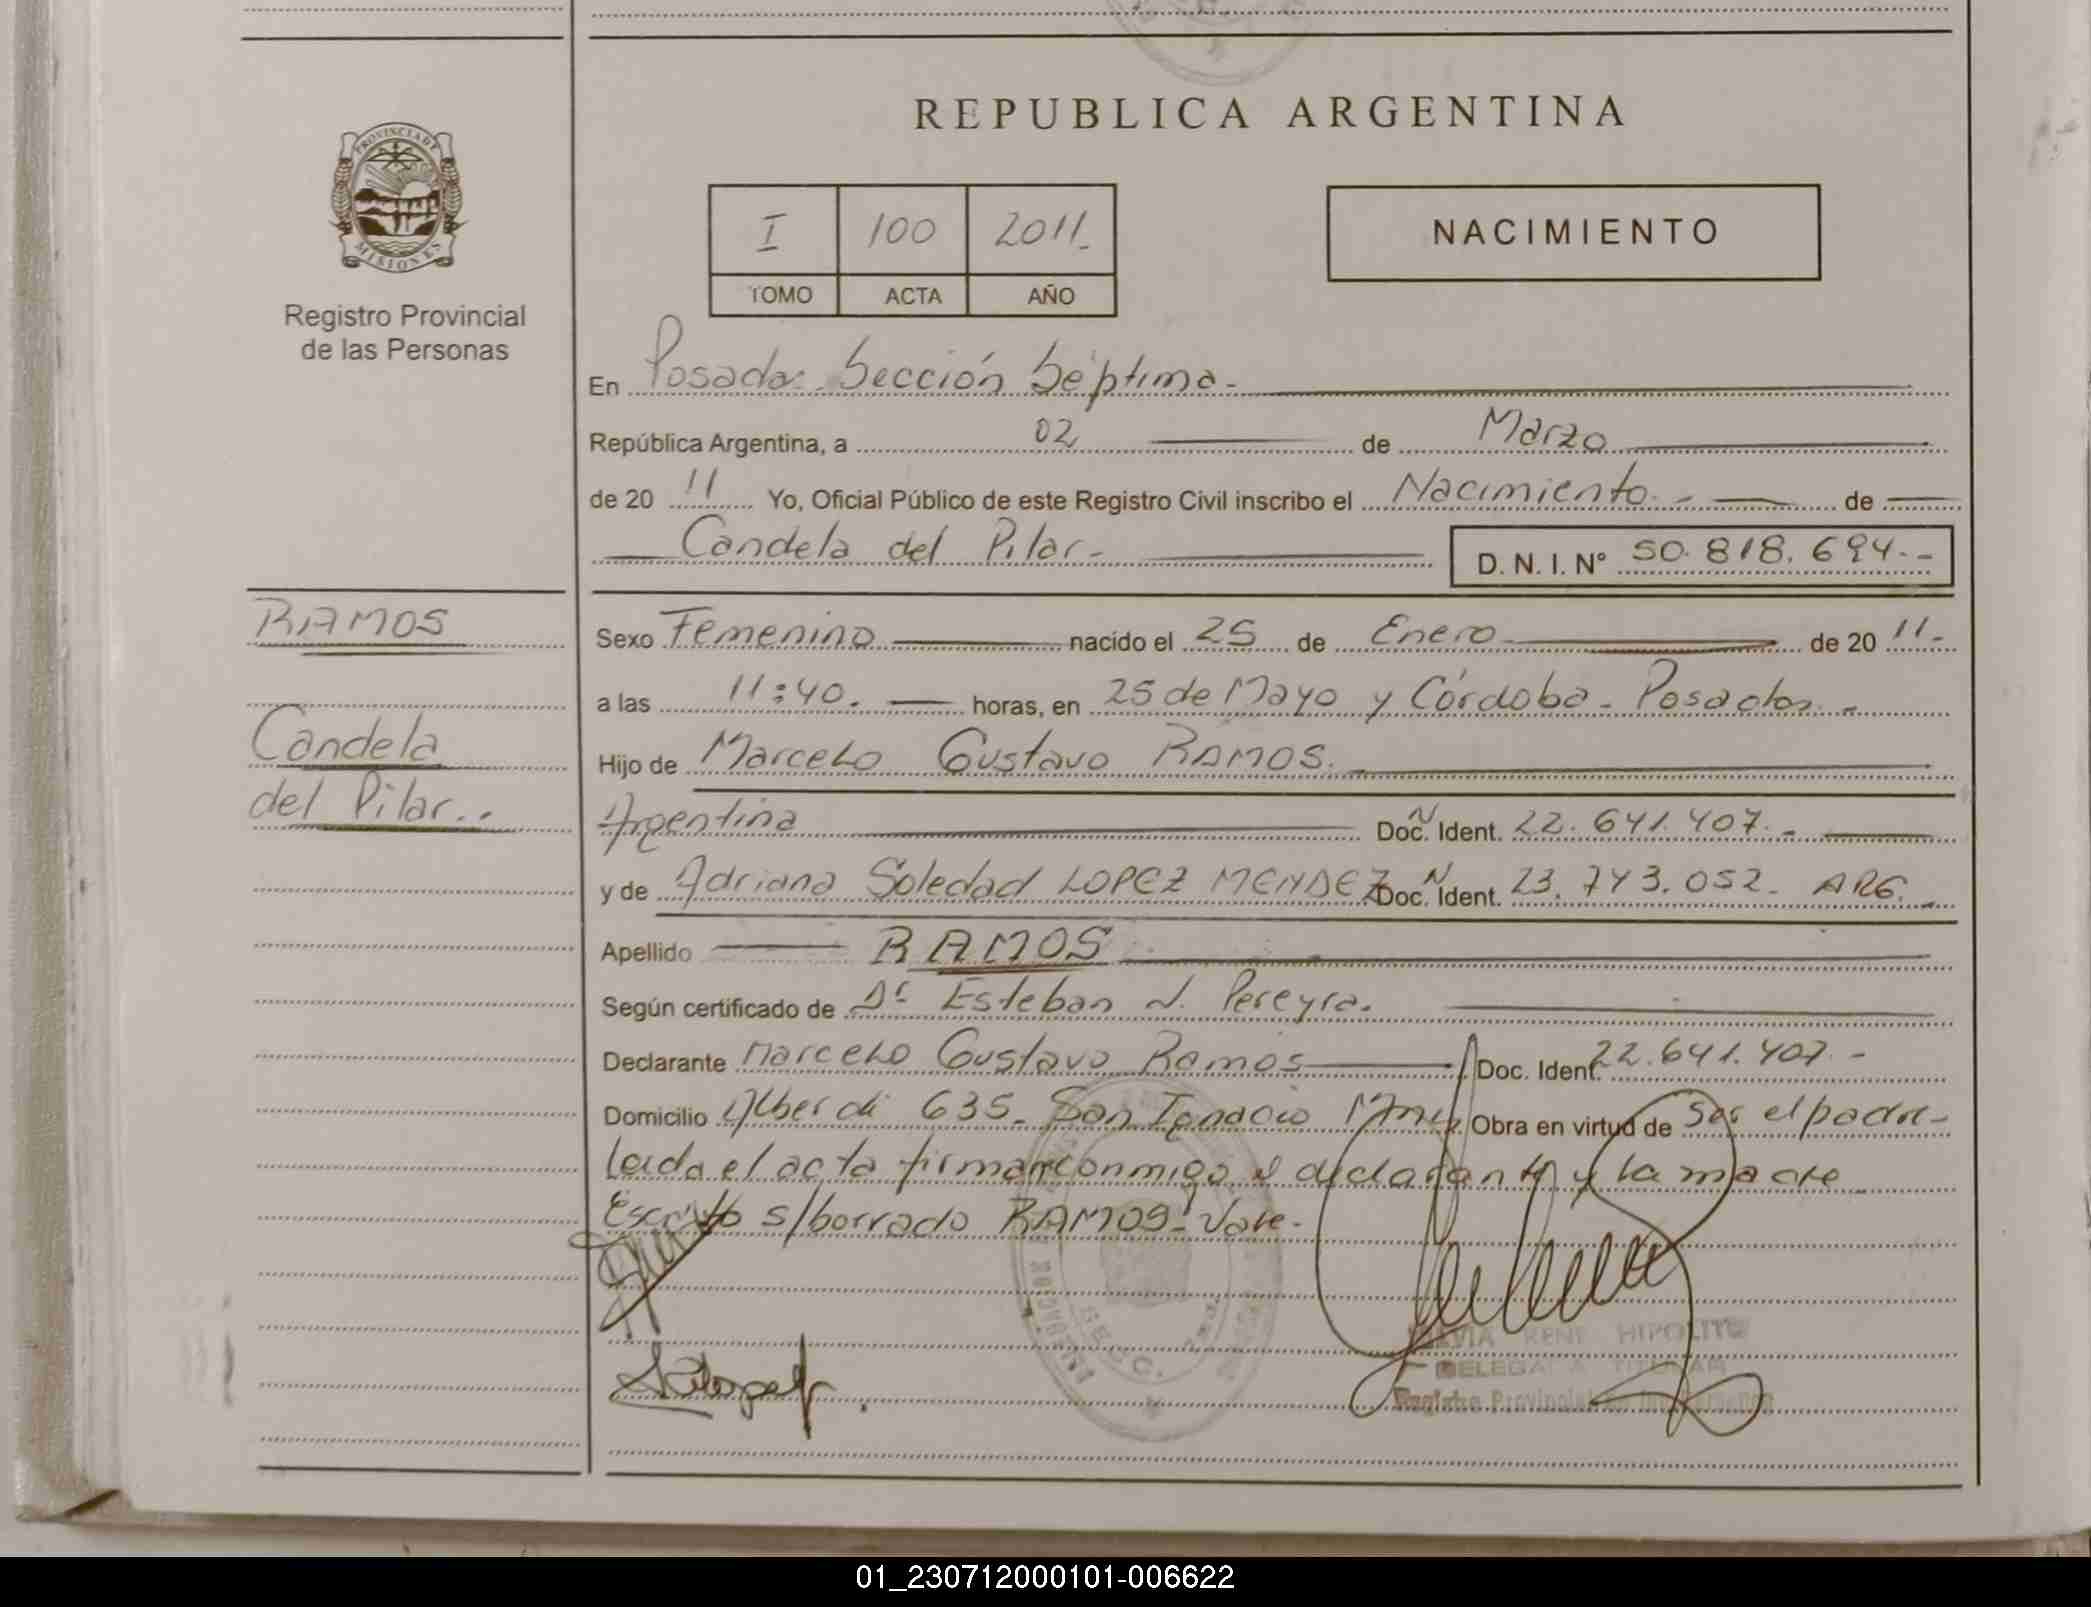 REPUBLICA ARGENTINA
PROVINCIA DE
MISIONES
Registro Provincial
de las Personas
I 100 2011.
TOMO ACTA AÑO
NACIMIENTO
En Posadas. Sección Séptima.-
República Argentina, a 02 de Marzo
de 20 11 Yo, Oficial Público de este Registro Civil inscribo el Nacimiento.- de
Candela del Pilar.-
D. N. I. Nº 50.818.694.-
RAMOS
Candela
del Pilar..
Sexo Femenino nacido el 25 de Enero de 20 11.-
a las 11:40. horas, en 25 de Mayo y Córdoba - Posadas.-
Hijo de Marcelo Gustavo RAMOS.
Argentina Doc. Ident. 22.641.407.-
y de Adriana Soledad LOPEZ MENDEZ Doc. Ident. 23.743.052. ARG.-
Apellido RAMOS
Según certificado de Dr Esteban J. Pereyra.
Declarante Marcelo Gustavo Ramos Doc. Ident. 22.641.407.-
Domicilio Alberdi 635- San Ignacio Mnes. Obra en virtud de Ser el padre-
Leida el acta firman conmigo el declarante y la madre
Escrito s/borrado RAMOS- Vale.-
RENE HIPOLITO
TITULAR
Registro Provincial
01_230712000101-006622